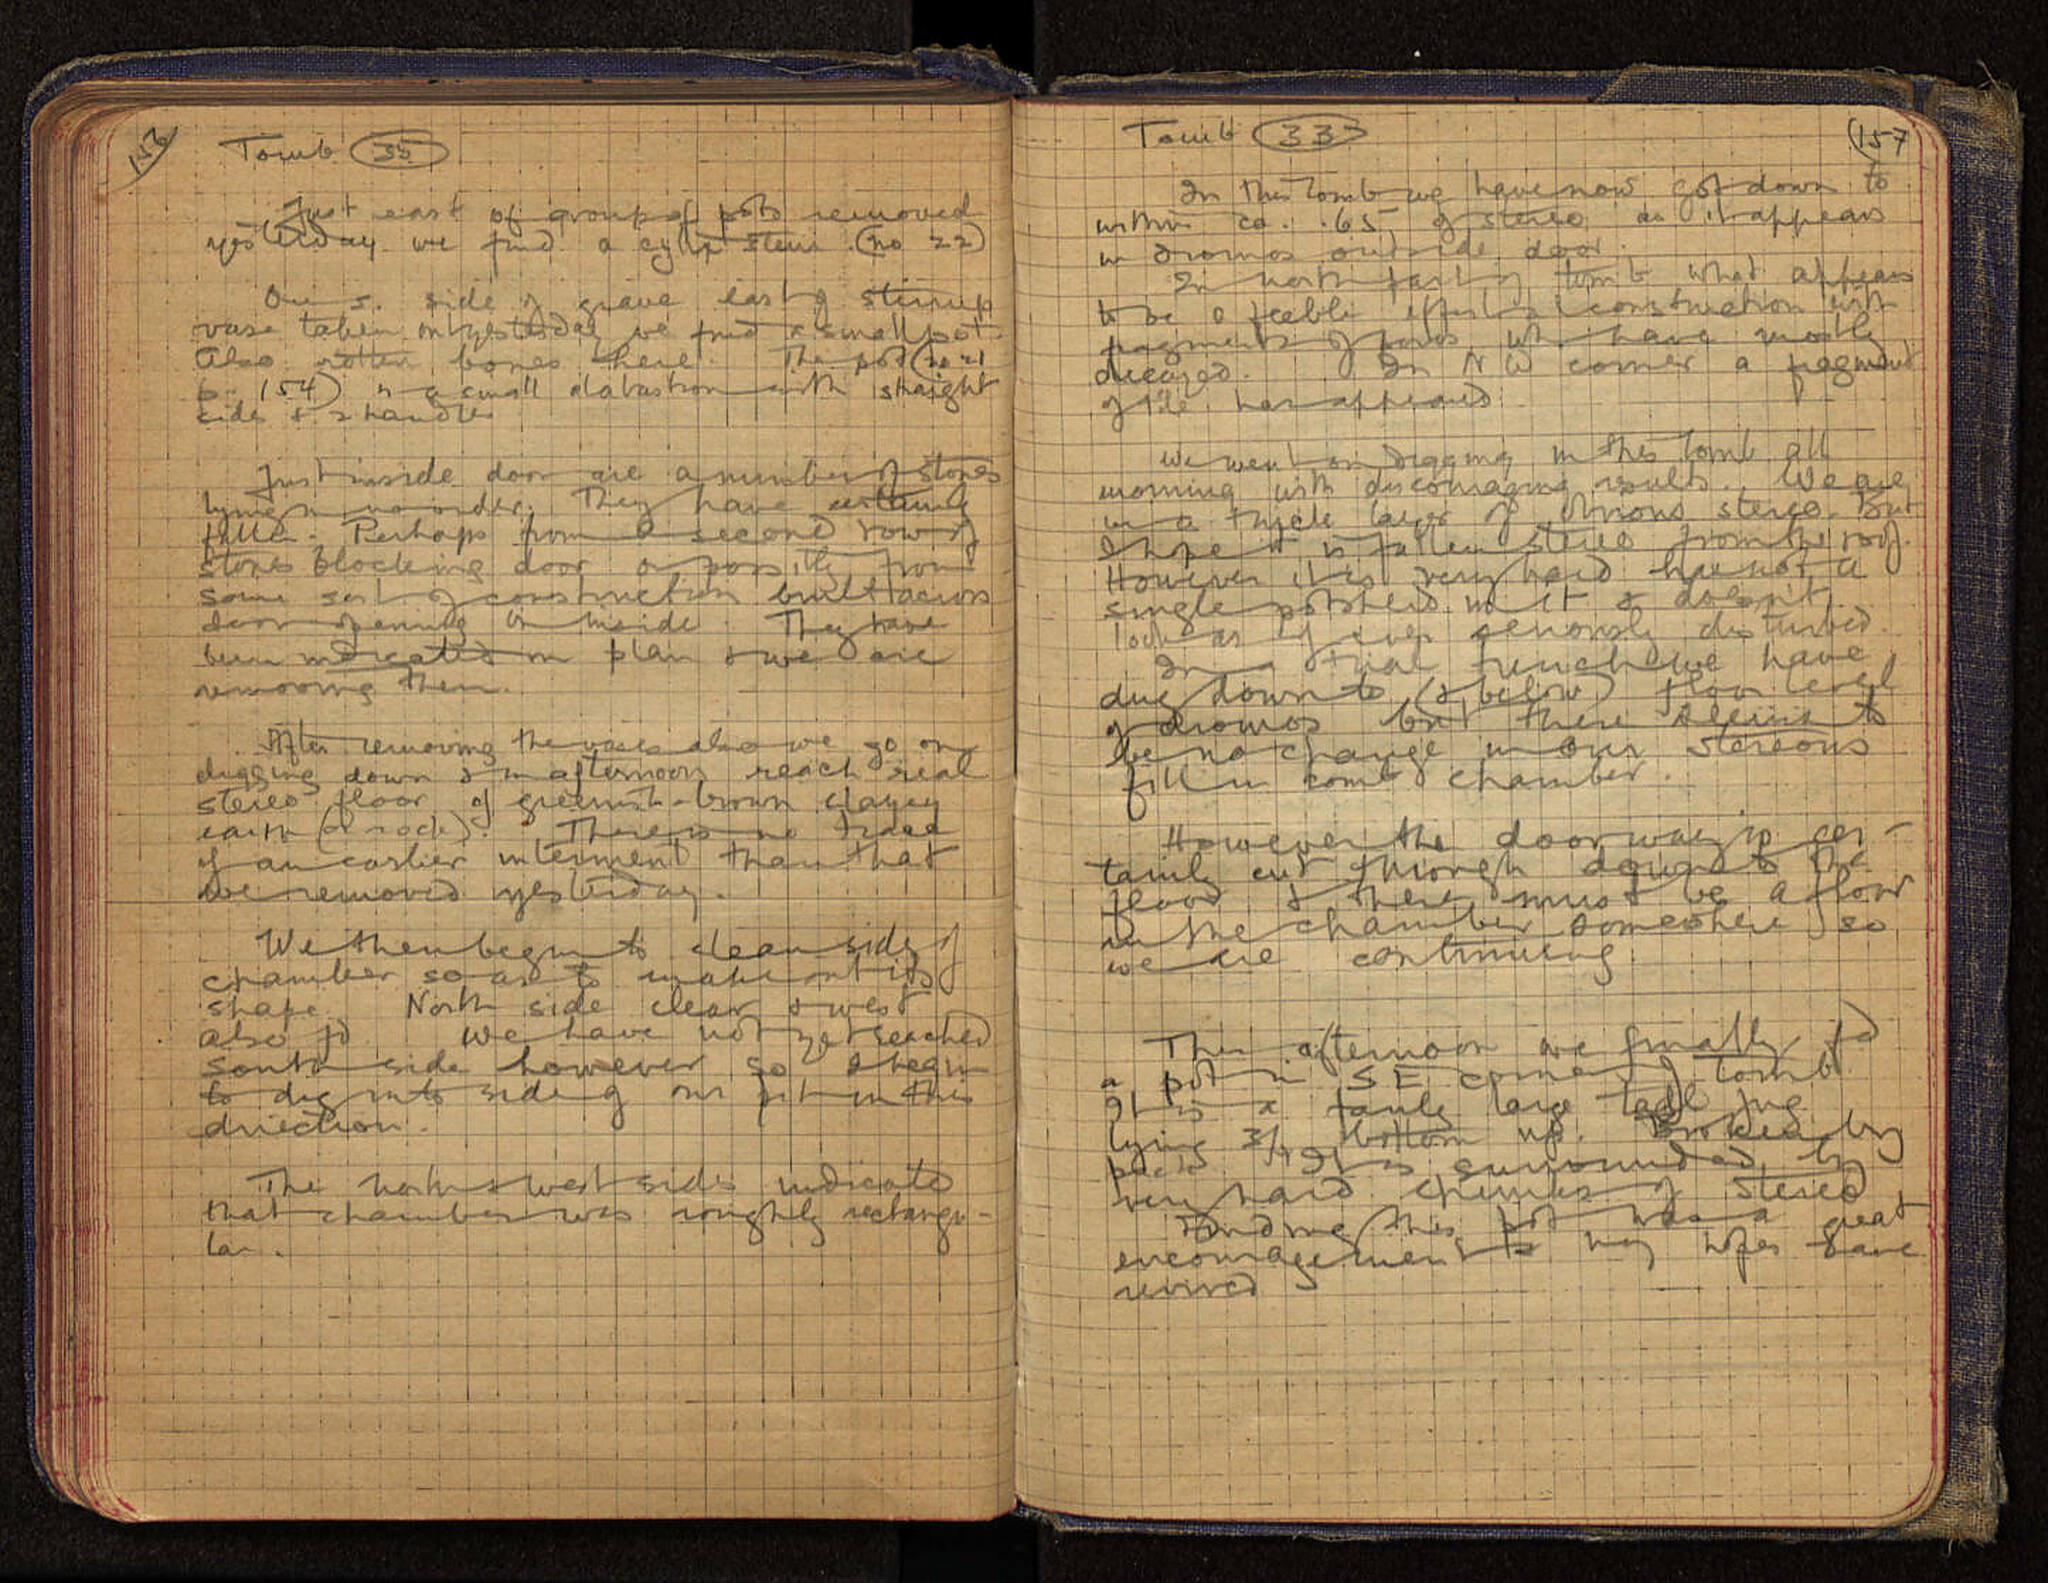 156
Tomb 35
Just east of group of pots removed
yesterday we find a cylix stem (no 22)
On s. side of grave east of stirrup
vase taken out yesterday we find a small pot.
Also rotten bones here. The pot (no 21
p. 154) is a small alabastron with straight
sides & 2 handles
Just inside door are a number of stones
lying in no order. They have certainly
fallen. Perhaps from a second row of
stones blocking door or possibly from
some sort of construction built across
door opening on inside. They have
been indicated on plan & we are
removing them.
After removing the vases also we go on
digging down & in afternoon reach real
stereo floor of greenish-brown clayey
earth (or rock). There is no trace
of an earlier interment than that
we removed yesterday.
We then begin to clean sides of
chamber so as to make out its
shape. North side clear & west
also fd. We have not yet reached
south side however so I begin
to dig into side of our pit in this
direction.
The north & west sides indicate
that chamber was roughly rectangu-
lar.
157
Tomb 33
In this tomb we have now got down to
within ca. .65 of stereo as it appears
in dromos outside door.
In north part of tomb what appears
to be a feeble effort at construction with
fragments of poros wh. have mostly
decayed. In NW corner a fragment
of tile has appeared.
We went on digging in this tomb all
morning with discouraging results. We are
in a thick layer of obvious stereo. But
I hope it is fallen stereo from the roof.
However it is very hard has not a
single potsherd in it & doesn't
look as if ever seriously disturbed.
In a trial trench we have
dug down to (& below) floor level
of dromos but there seems to
be no change in our stereous
fill in tomb chamber.
However the doorway is cer-
tainly cut through down to the
floor & there must be a floor
in the chamber somewhere so
we are continuing.
This afternoon we finally fd
a pot in SE corner of tomb.
It is a fairly large tall jug
lying 3/4 bottom up. Broken by
pick. It is surrounded by
very hard chunks of stereo
Finding this pot was a great
encouragement & my hopes have
revived